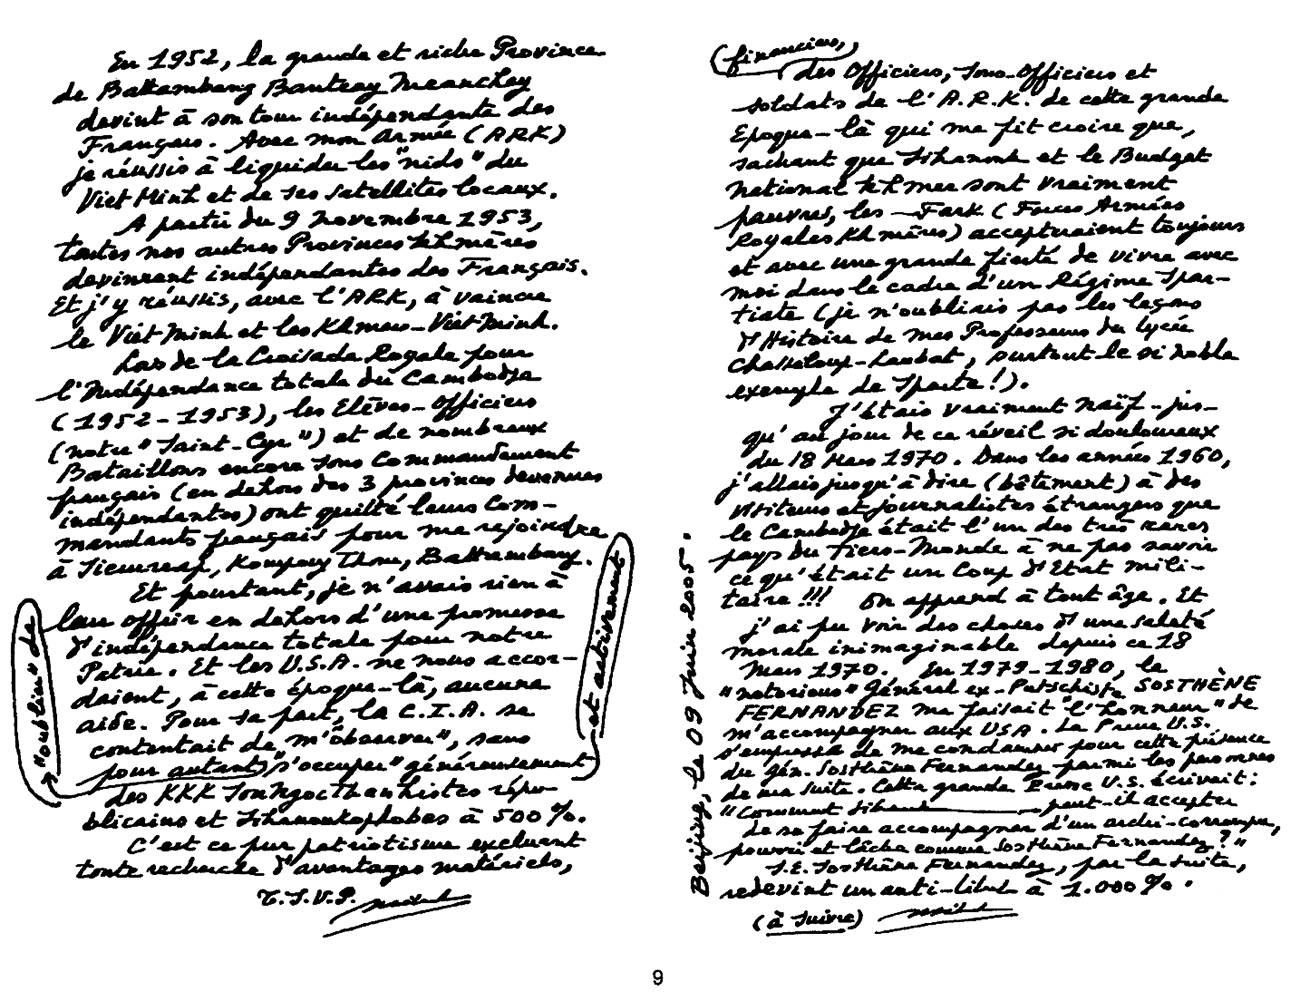 En 1952, la grande et riche Province
de Battambang Banteay Meanchey
devint à son tour indépendante des
Français. Avec mon Armée (ARK)
je réussis à liquider les "nids" du
Viêt Minh et de ses satellites locaux.
A partir du 9 Novembre 1953,
toutes nos autres Provinces Khmères
devinrent indépendantes des Français.
Et j'y réussis, avec l'ARK, à vaincre
le Viêt Minh et les Khmers-Viêt Minh.
Lors de la Croisade Royale pour
l'Indépendance totale du Cambodge
(1952-1953), les Elèves-Officiers
(notre "Saint-Cyr") et de nombreux
Bataillons encore sous Commandement
français (en dehors des 3 provinces devenues
indépendantes) ont quitté leurs Com-
mandants français pour me rejoindre
à Siemreap, Kompong Thom, Battambang.
Et pourtant, je n'avais rien à
leur offrir en dehors d'une promesse
d'indépendance totale pour notre
Patrie. Et les U.S.A. ne nous accor-
daient, à cette époque-là, aucune
aide. Pour sa part, la C.I.A. se
contentait de "m'observer", sans
pour autant "oublier" de "s'occuper" généreusement et activement
des KKK Son Ngoc Thanhistes répu-
blicains et Sihanoukophobes à 500%.
C'est ce pur patriotisme excluant
toute recherche d'avantages matériels,
T.S.V.P.
(financiers,)
des Officiers, Sous-Officiers et
soldats de l'A.R.K. de cette grande
Epoque-là qui me fit croire que,
sachant que Sihanouk et le Budget
national Khmer sont vraiment
pauvres, les Fark (Forces Armées
Royales Khmères) accepteraient toujours
et avec une grande fierté de vivre avec
moi dans le cadre d'un Régime Spar-
tiate (je n'oubliais pas les leçons
d'Histoire de mes Professeurs du lycée
Chasseloup-Laubat, surtout le si noble
exemple de Sparte!).
J'étais vraiment naïf jus-
qu'au jour de ce réveil si douloureux
du 18 Mars 1970. Dans les années 1960,
j'allais jusqu'à dire (bêtement) à des
visiteurs et journalistes étrangers que
le Cambodge était l'un des très rares
pays du Tiers-Monde à ne pas savoir
ce qu'était un Coup d'Etat mili-
taire!!! On apprend à tout âge. Et
j'ai pu voir des choses d'une saleté
morale inimaginable depuis ce 18
Mars 1970. En 1979-1980, le
"notorious" Général ex-Putschiste SOSTHÈNE
FERNANDEZ me faisait "l'honneur" de
m'accompagner aux USA. La Presse U.S.
s'empressa de me condamner pour cette présence
du Gén. Sosthène Fernandez parmi les personnes
de ma suite. Cette grande Presse U.S. écrivait:
"Comment Sihanouk peut-il accepter
de se faire accompagner d'un archi-corrompu,
pourri et lâche comme Sosthène Fernandez?"
S.E. Sosthène Fernandez, par la suite,
redevint un anti-Sihanouk à 1.000%.
(à suivre)
Beijing, le 09 Juin 2005.
9